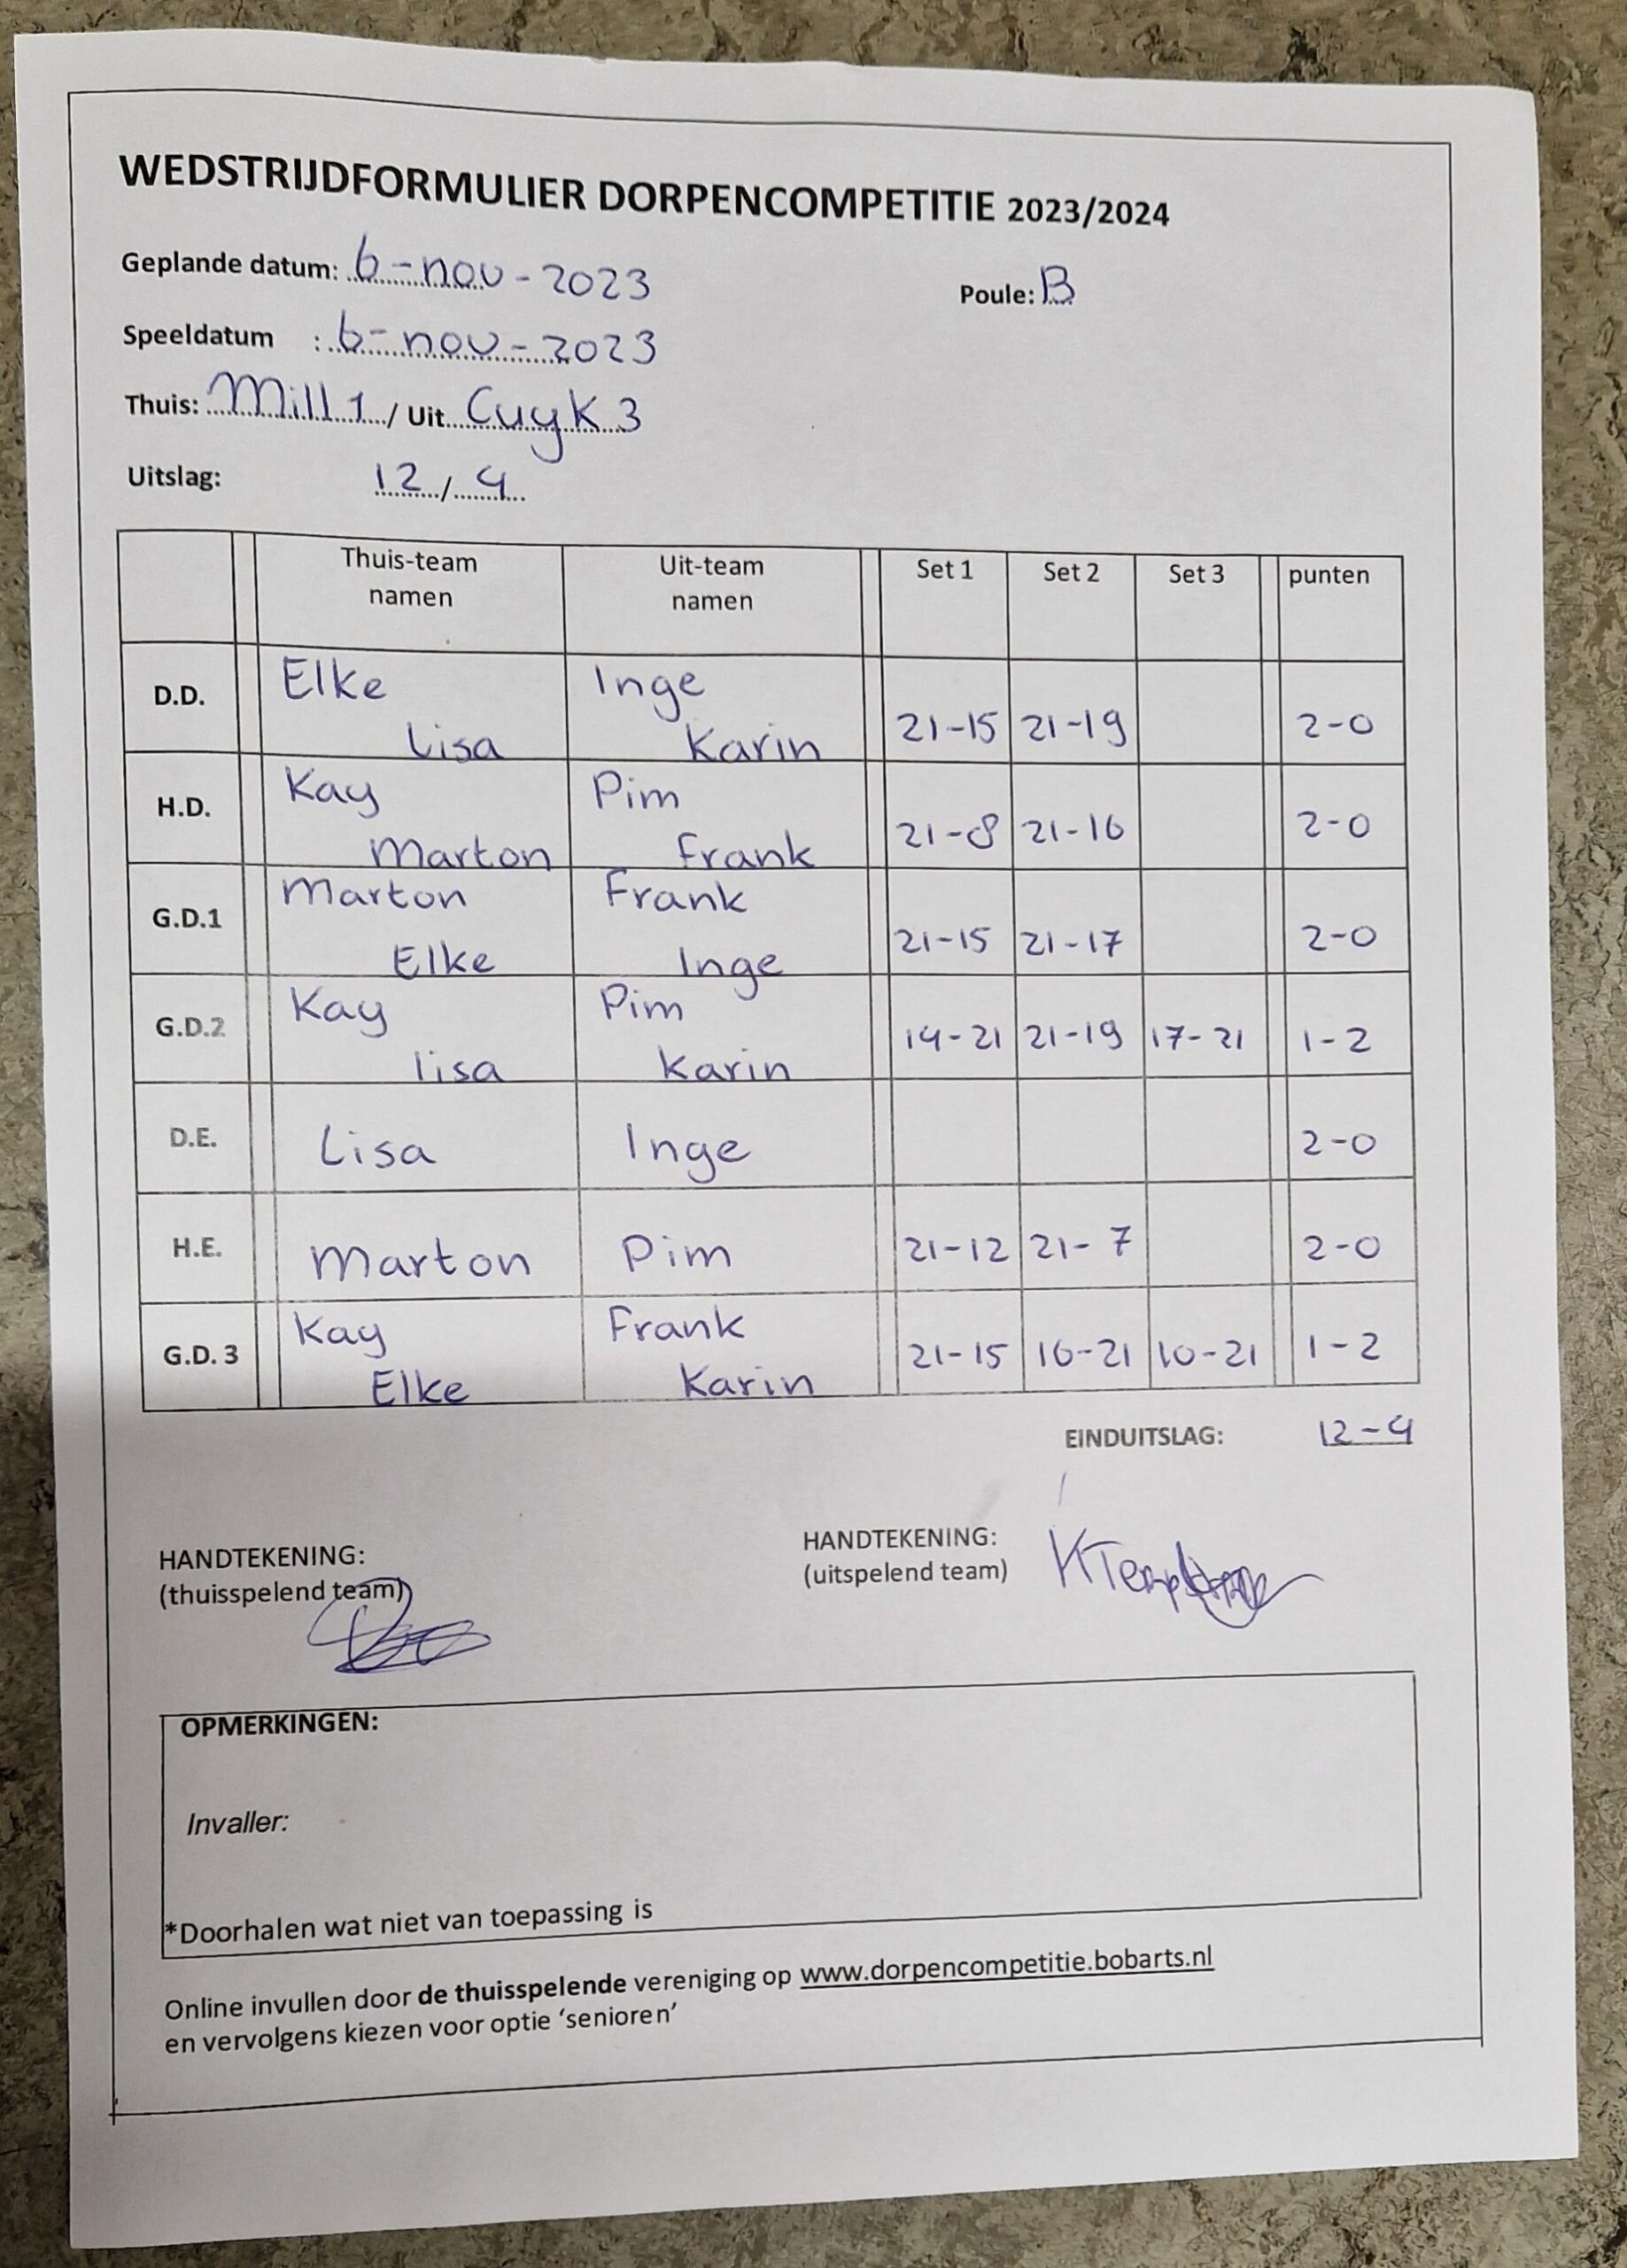 WEDSTRIJDFORMULIER DORPENCOMPETITIE 2023/2024
Geplande datum: 6-nov-2023 Poule: B
Speeldatum : 6-nov-2023
Thuis: Mill 1 / Uit Cuyk 3
Uitslag: 12 / 4
Thuis-team namen Uit-team namen Set 1 Set 2 Set 3 punten
D.D. Elke Lisa Inge Karin 21-15 21-19 2-0
H.D. Kay Marton Pim Frank 21-8 21-16 2-0
G.D.1 Marton Elke Frank Inge 21-15 21-17 2-0
G.D.2 Kay lisa Pim Karin 14-21 21-19 17-21 1-2
D.E. Lisa Inge 2-0
H.E. Marton Pim 21-12 21-7 2-0
G.D. 3 Kay Elke Frank Karin 21-15 16-21 10-21 1-2
EINDUITSLAG: 12-4
HANDTEKENING: HANDTEKENING:
(thuisspelend team) (uitspelend team)
OPMERKINGEN:
Invaller:
*Doorhalen wat niet van toepassing is
Online invullen door de thuisspelende vereniging op www.dorpencompetitie.bobarts.nl
en vervolgens kiezen voor optie ‘senioren’